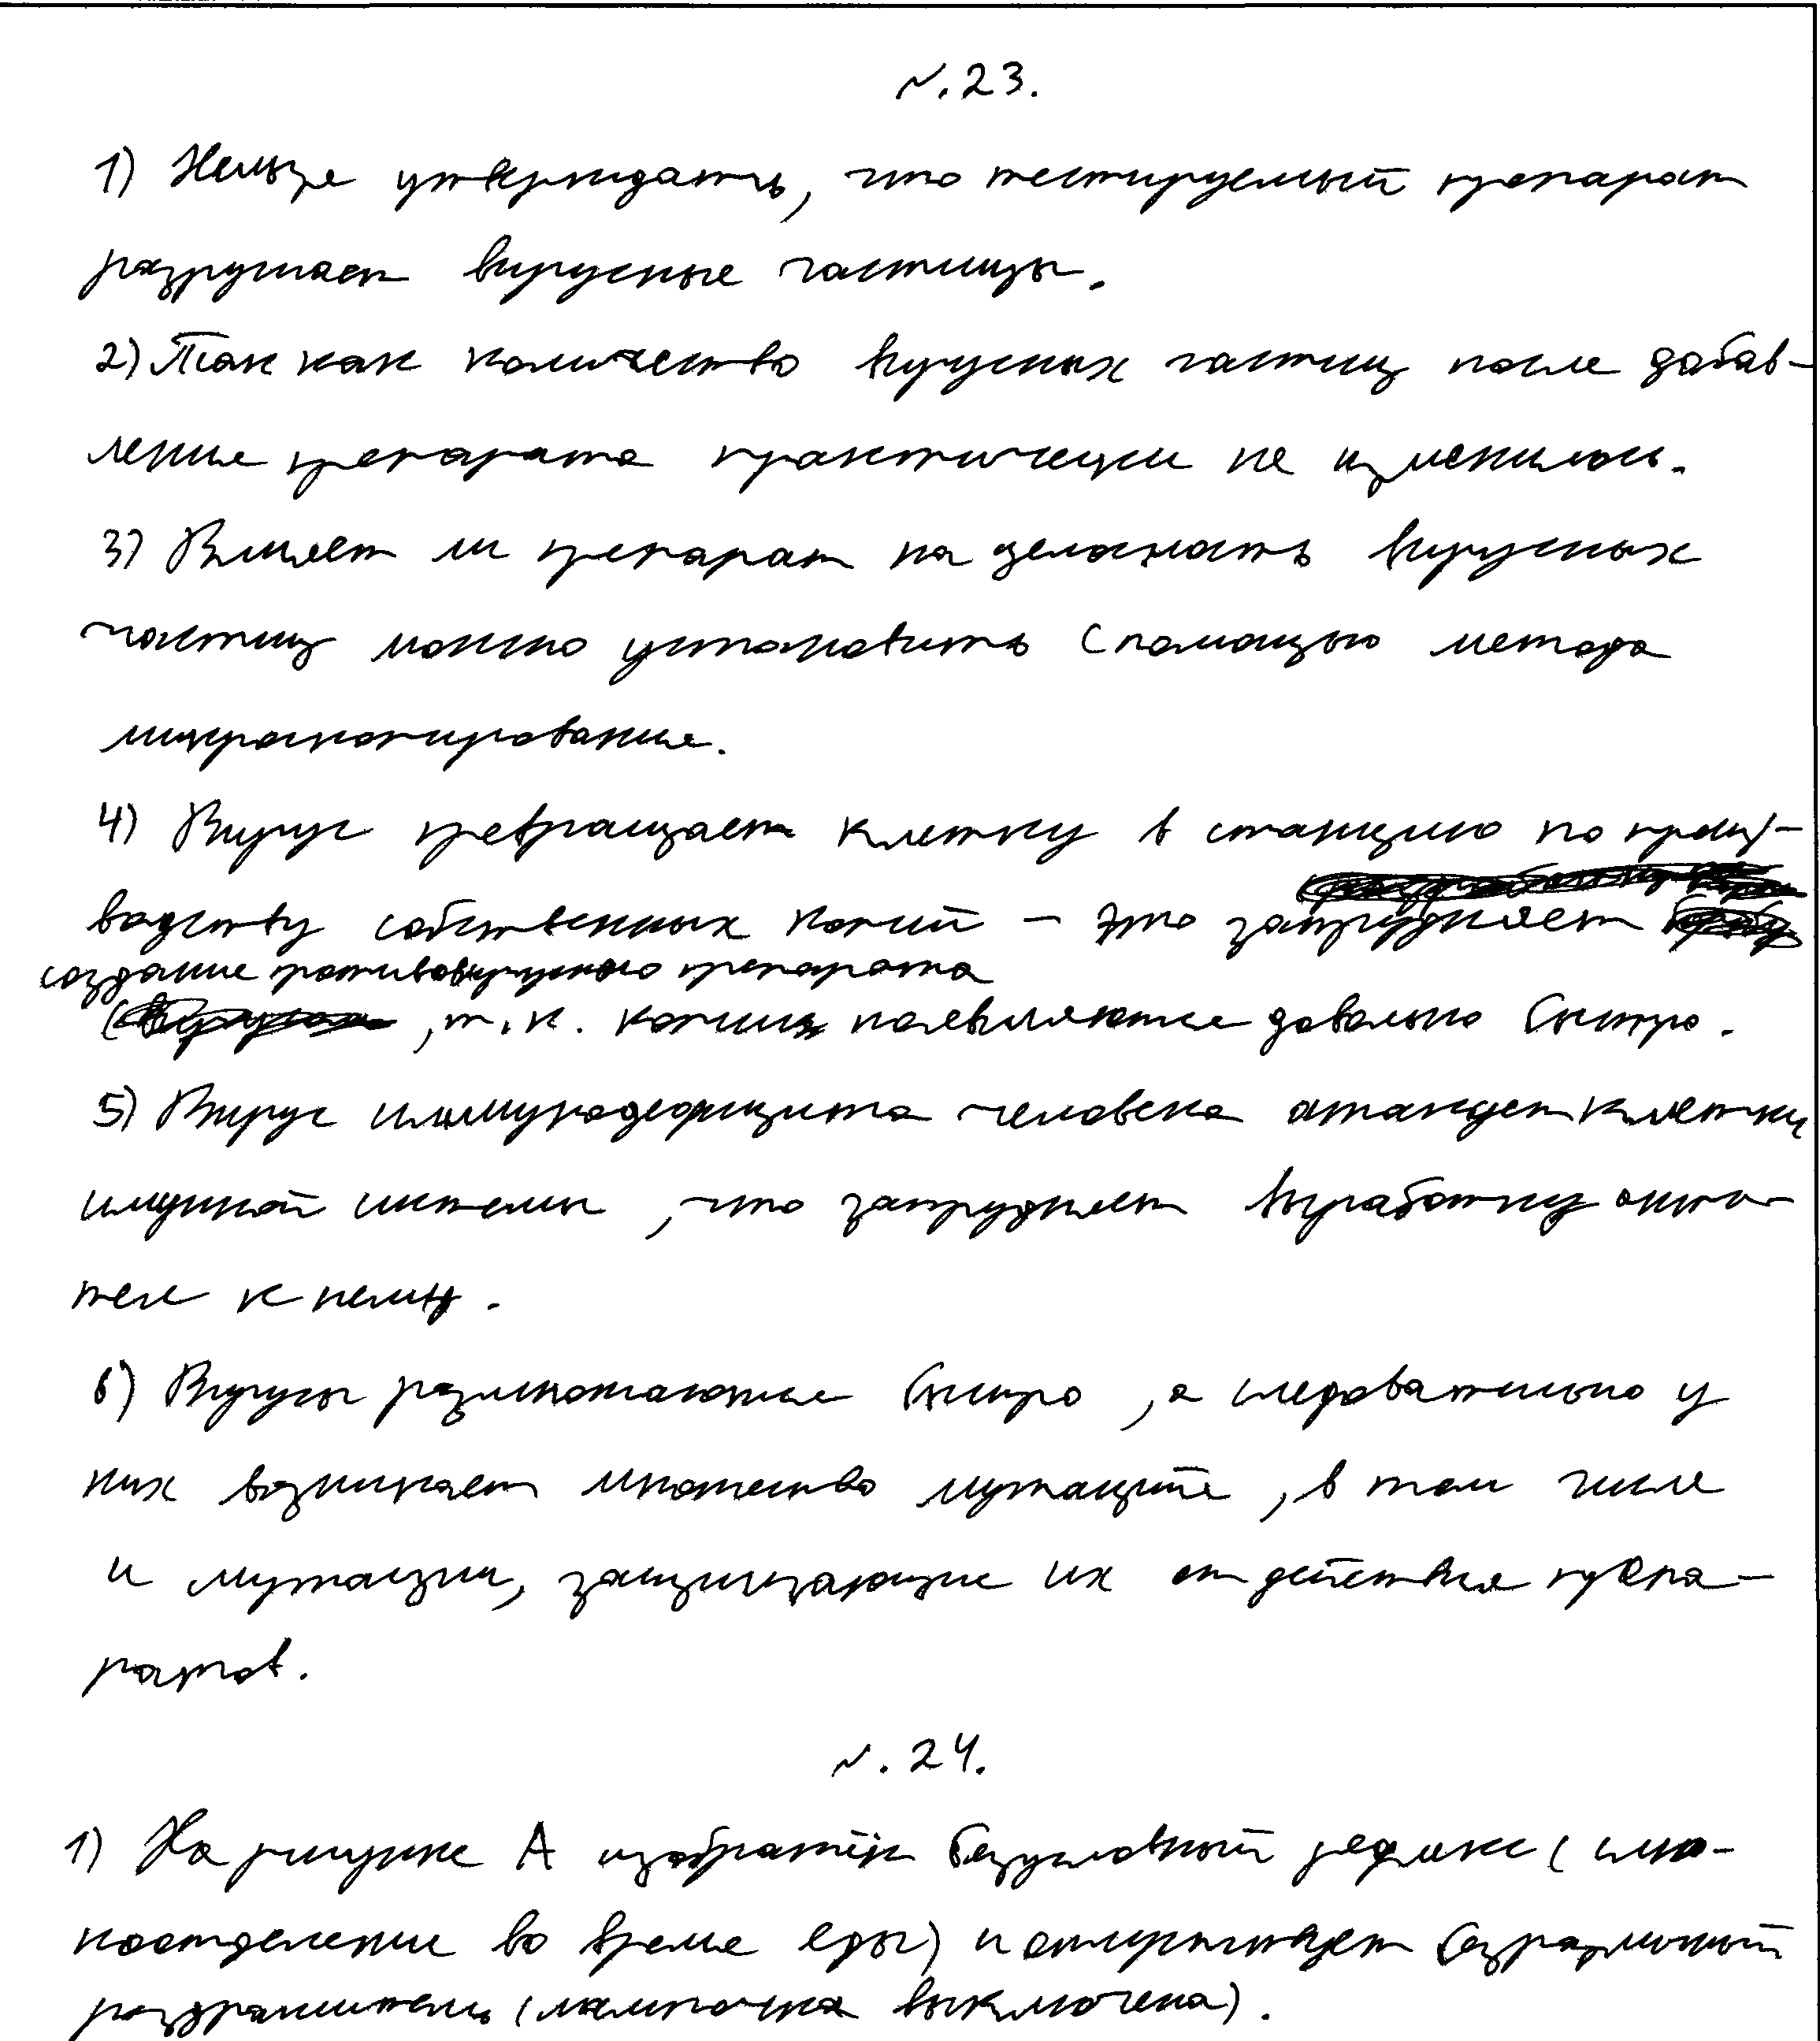 N.23.
1) Нельзя утверждать, что тестируемый препарат
разрушает вирусные частицы.
2) Так как количество вирусных частиц после добав-
ления препарата практически не изменилось.
3) Влияет ли препарат на целостность вирусных
частиц можно установить с помощью метода
микроскопирования.
4) Вирус превращает клетку в станцию по произ-
водству собственных копий – это затрудняет
создание противовирусного препарата
, т.к. копии появляются довольно быстро.
5) Вирус иммунодефицита человека атакует клетки
имунной системы, что затрудняет выработку анти-
тел к нему.
6) Вирусы размножаются быстро, а следовательно у
них возникает множество мутаций, в том числе
и мутации, защищающие их от действия препа-
ратов.
N. 24.
1) На рисунке А изображён безусловный рефлекс (слю-
ноотделение во время еды) и отсутствует безразличный
раздражитель (лампочка выключена).